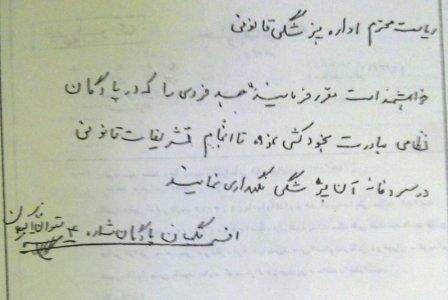 ریاست محترم اداره پزشکی قانونی
خواهشمند است مقرر فرمایید جسد فردی را که در پادگان
نظامی مبادرت بخودکشی نموده تا انجام تشریفات قانونی
در سردخانه آن پزشکی نگهداری نمایند
افسر نگهبان پادگان شماره ۴